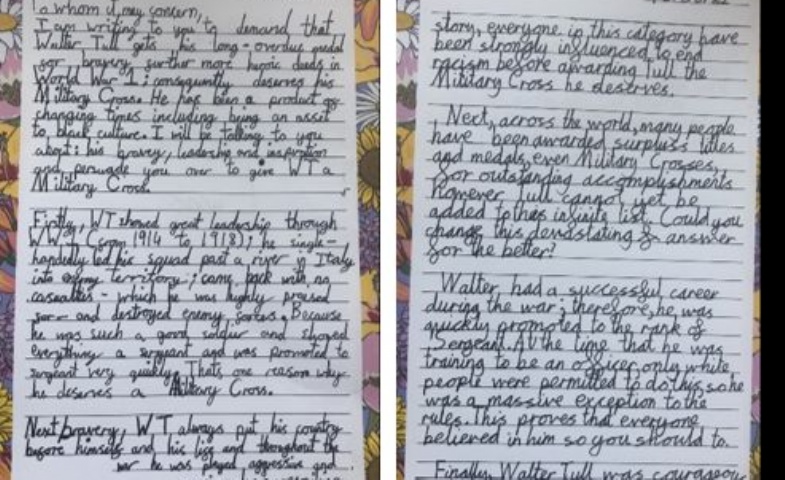 To whom it may concern,
I am writing to you to demand that
Walter Tull gets his long-overdue medal
for bravery, further more heroic deeds in
World War 1; consequently deserves his
Military Cross. He has been a product of
changing times including being an asset
to black culture. I will be talking to you
about: his bravery, leadership and inspiration
and persuade you over to give WT a
Military Cross.
Firstly, WT showed great leadership through
WW1 (from 1914 to 1918); he single-
handedly led his squad past a river in Italy
into enemy territory; came back with no
casualties - which he was highly praised
for - and destroyed enemy forces. Because
he was such a good soldier and showed
everything a sergeant and was promoted to
sergeant very quickly. Thats one reason why
he deserves a Military Cross.
Next, bravery, WT always put his country
before himself and his life and throughout the
war he was played aggressive and
story, everyone in this category have
been strongly influenced to end
racism before awarding Tull the
Military Cross he deserves.
Next, across the world, many people
have been awarded surpluss titles
and medals, even Military Crosses,
for outstanding accomplishments
however, Tull cannot yet be
added to this infinite list. Could you
change this devastating answer
for the better?
Walter had a successful career
during the war; therefore, he was
quickly promoted to the rank of
Sergeant. At the time that he was
training to be an officer, only white
people were permitted to do this, so he
was a massive exception to the
rules. This proves that everyone
believed in him so you should to.
Finally, Walter Tull was courageous